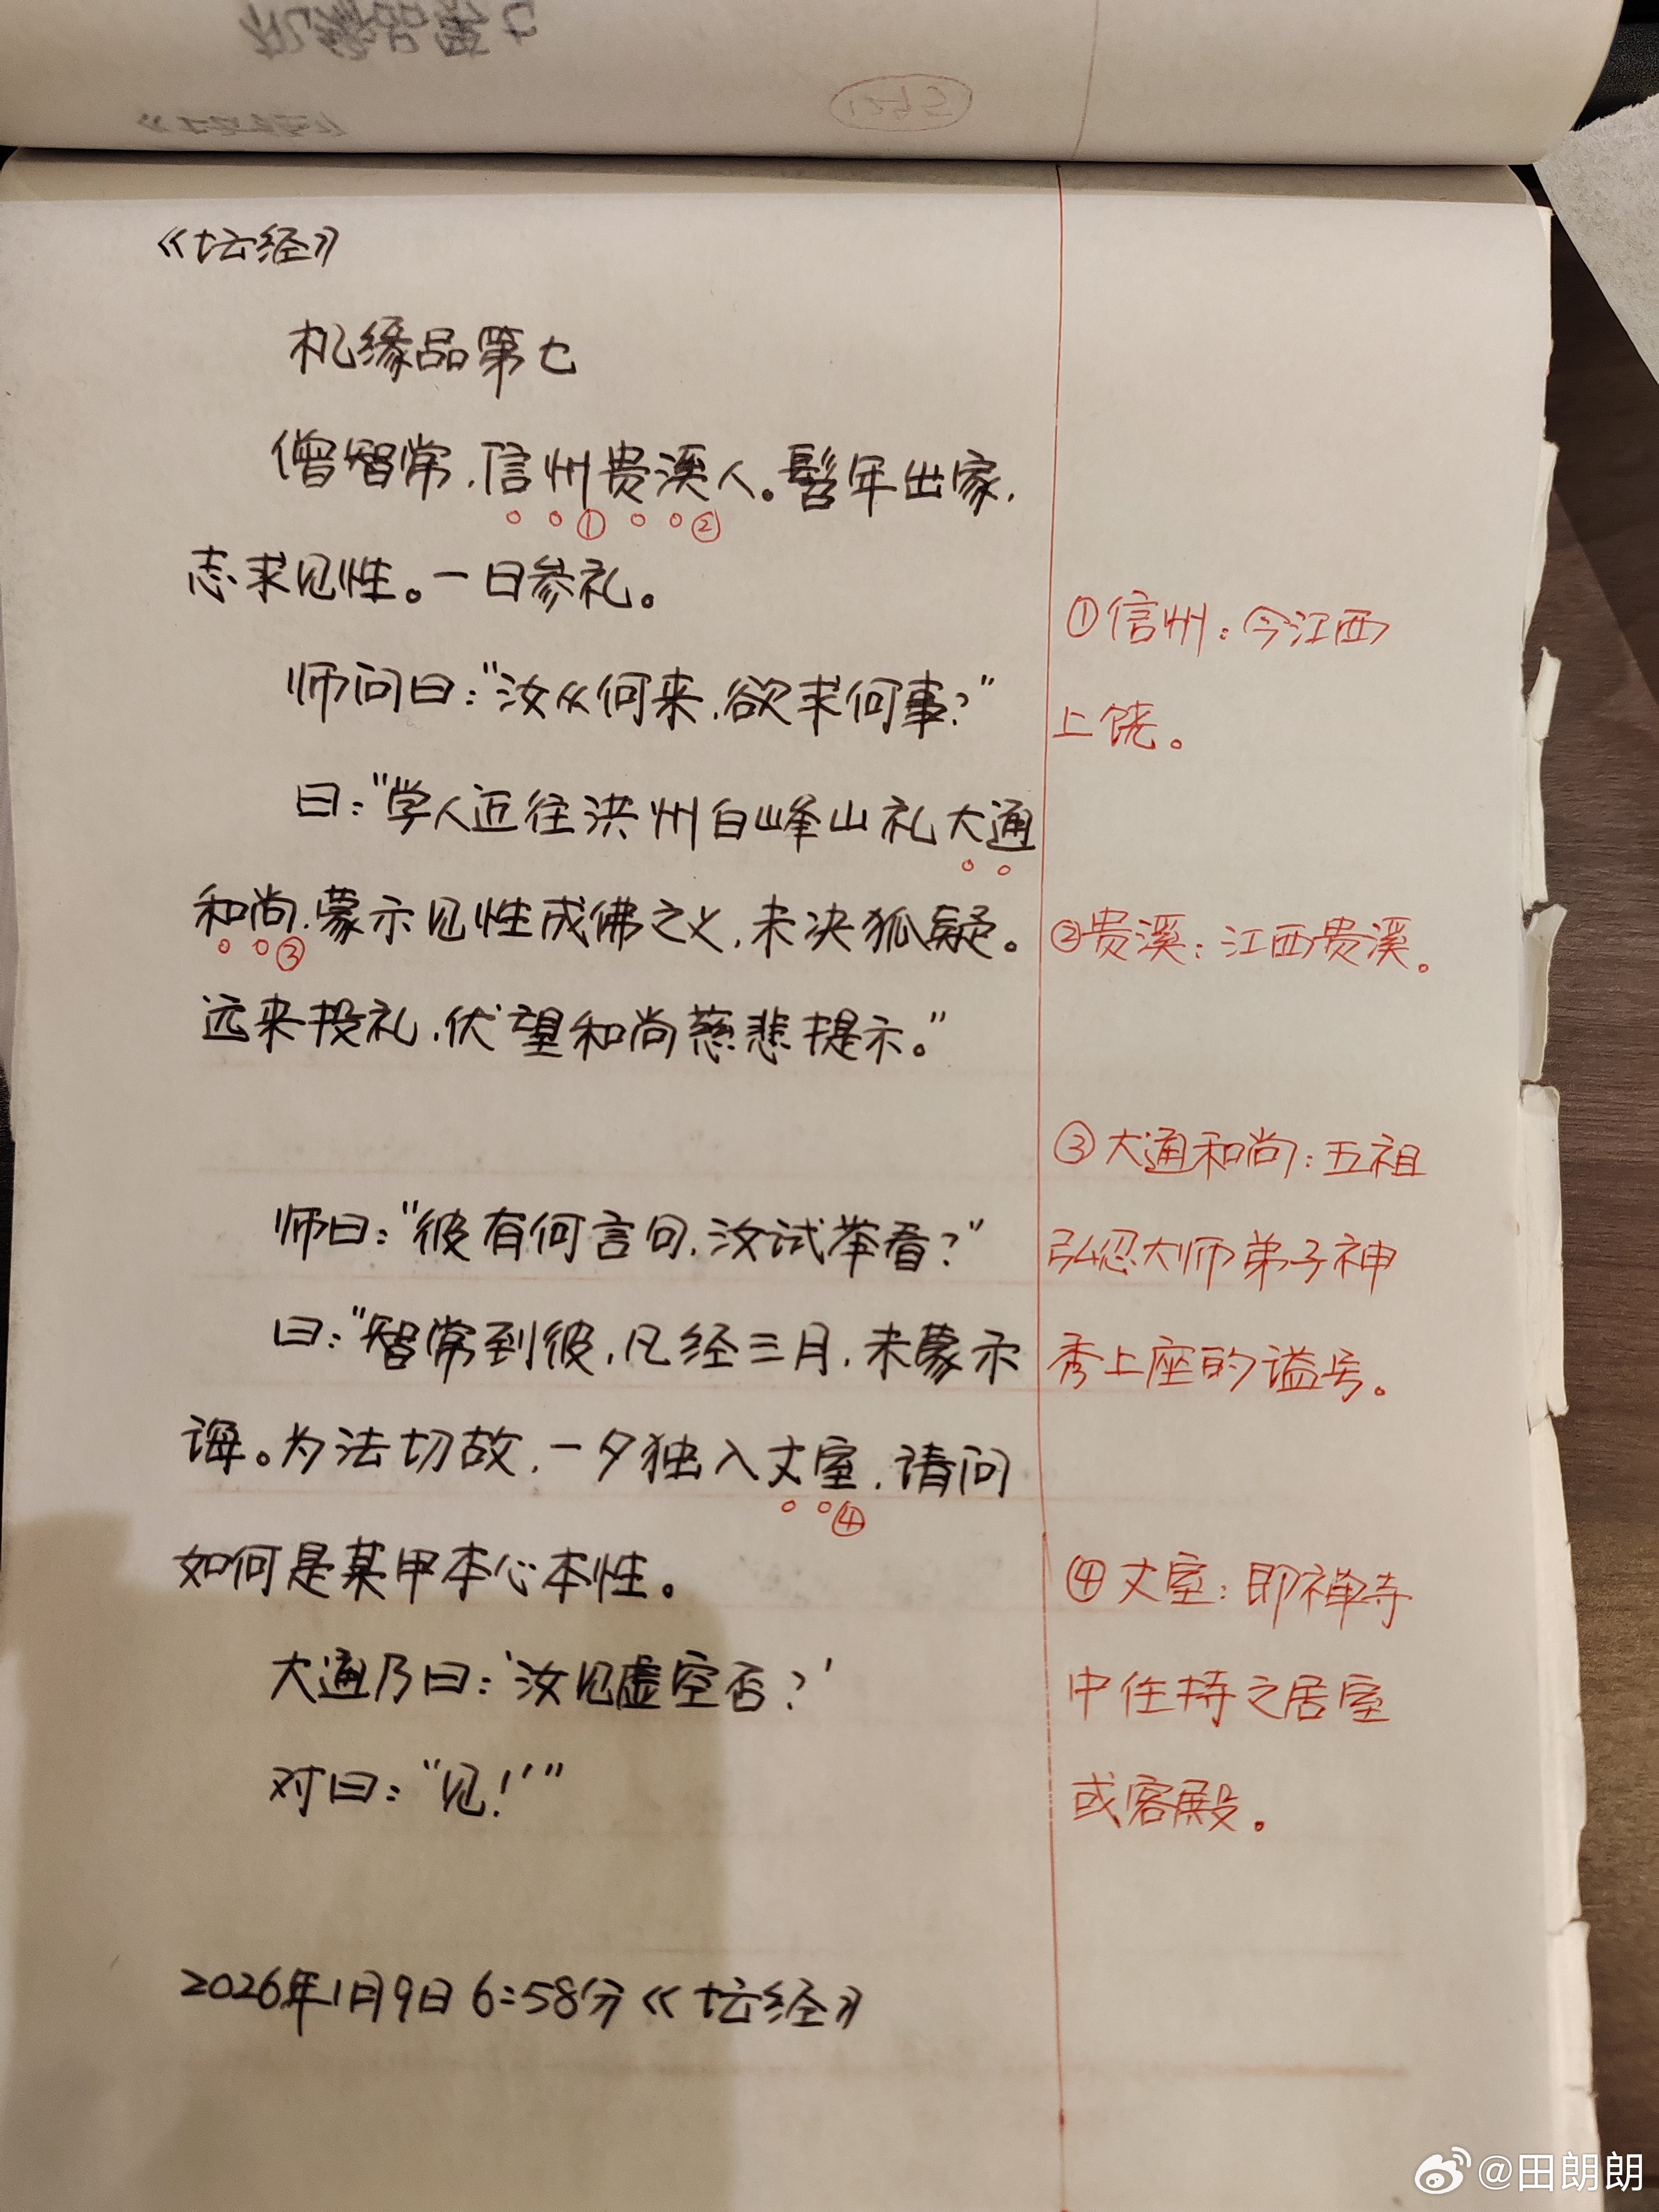 《坛经》
机缘品第七
僧智常，信州贵溪人。髫年出家，
①②
志求见性。一日参礼。
师问曰："汝从何来，欲求何事？"
曰："学人近往洪州白峰山礼大通
和尚，蒙示见性成佛之义，未决狐疑。
③
远来投礼，伏望和尚慈悲提示。"
师曰："彼有何言句，汝试举看？"
曰："智常到彼，凡经三月，未蒙示
诲。为法切故，一夕独入丈室，请问
④
如何是某甲本心本性。
大通乃曰：'汝见虚空否？'
对曰："见！'"
2026年1月9日6:58分《坛经》
①信州：今江西
上饶。
②贵溪：江西贵溪。
③大通和尚：五祖
弘忍大师弟子神
秀上座的谥号。
④丈室：即禅寺
中住持之居室
或客殿。
@田朗朗